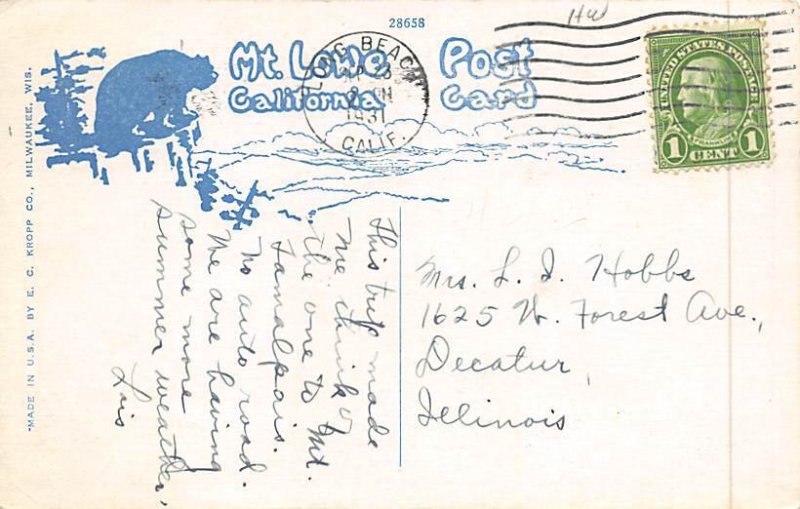 28658
HW
Mt. Lowe
California
Post
Card
LONG BEACH
1931
CALIF.
UNITED STATES POSTAGE
1 CENT 1
"MADE IN U.S.A. BY E. C. KROPP CO., MILWAUKEE, WIS.
This trip made
me think of
the one to Mt.
Tamalpais.
No auto road.
We are having
some more
summer weather,
Lois
Mrs. L. I. Hobbs
1625 W. Forest Ave.,
Decatur,
Illinois